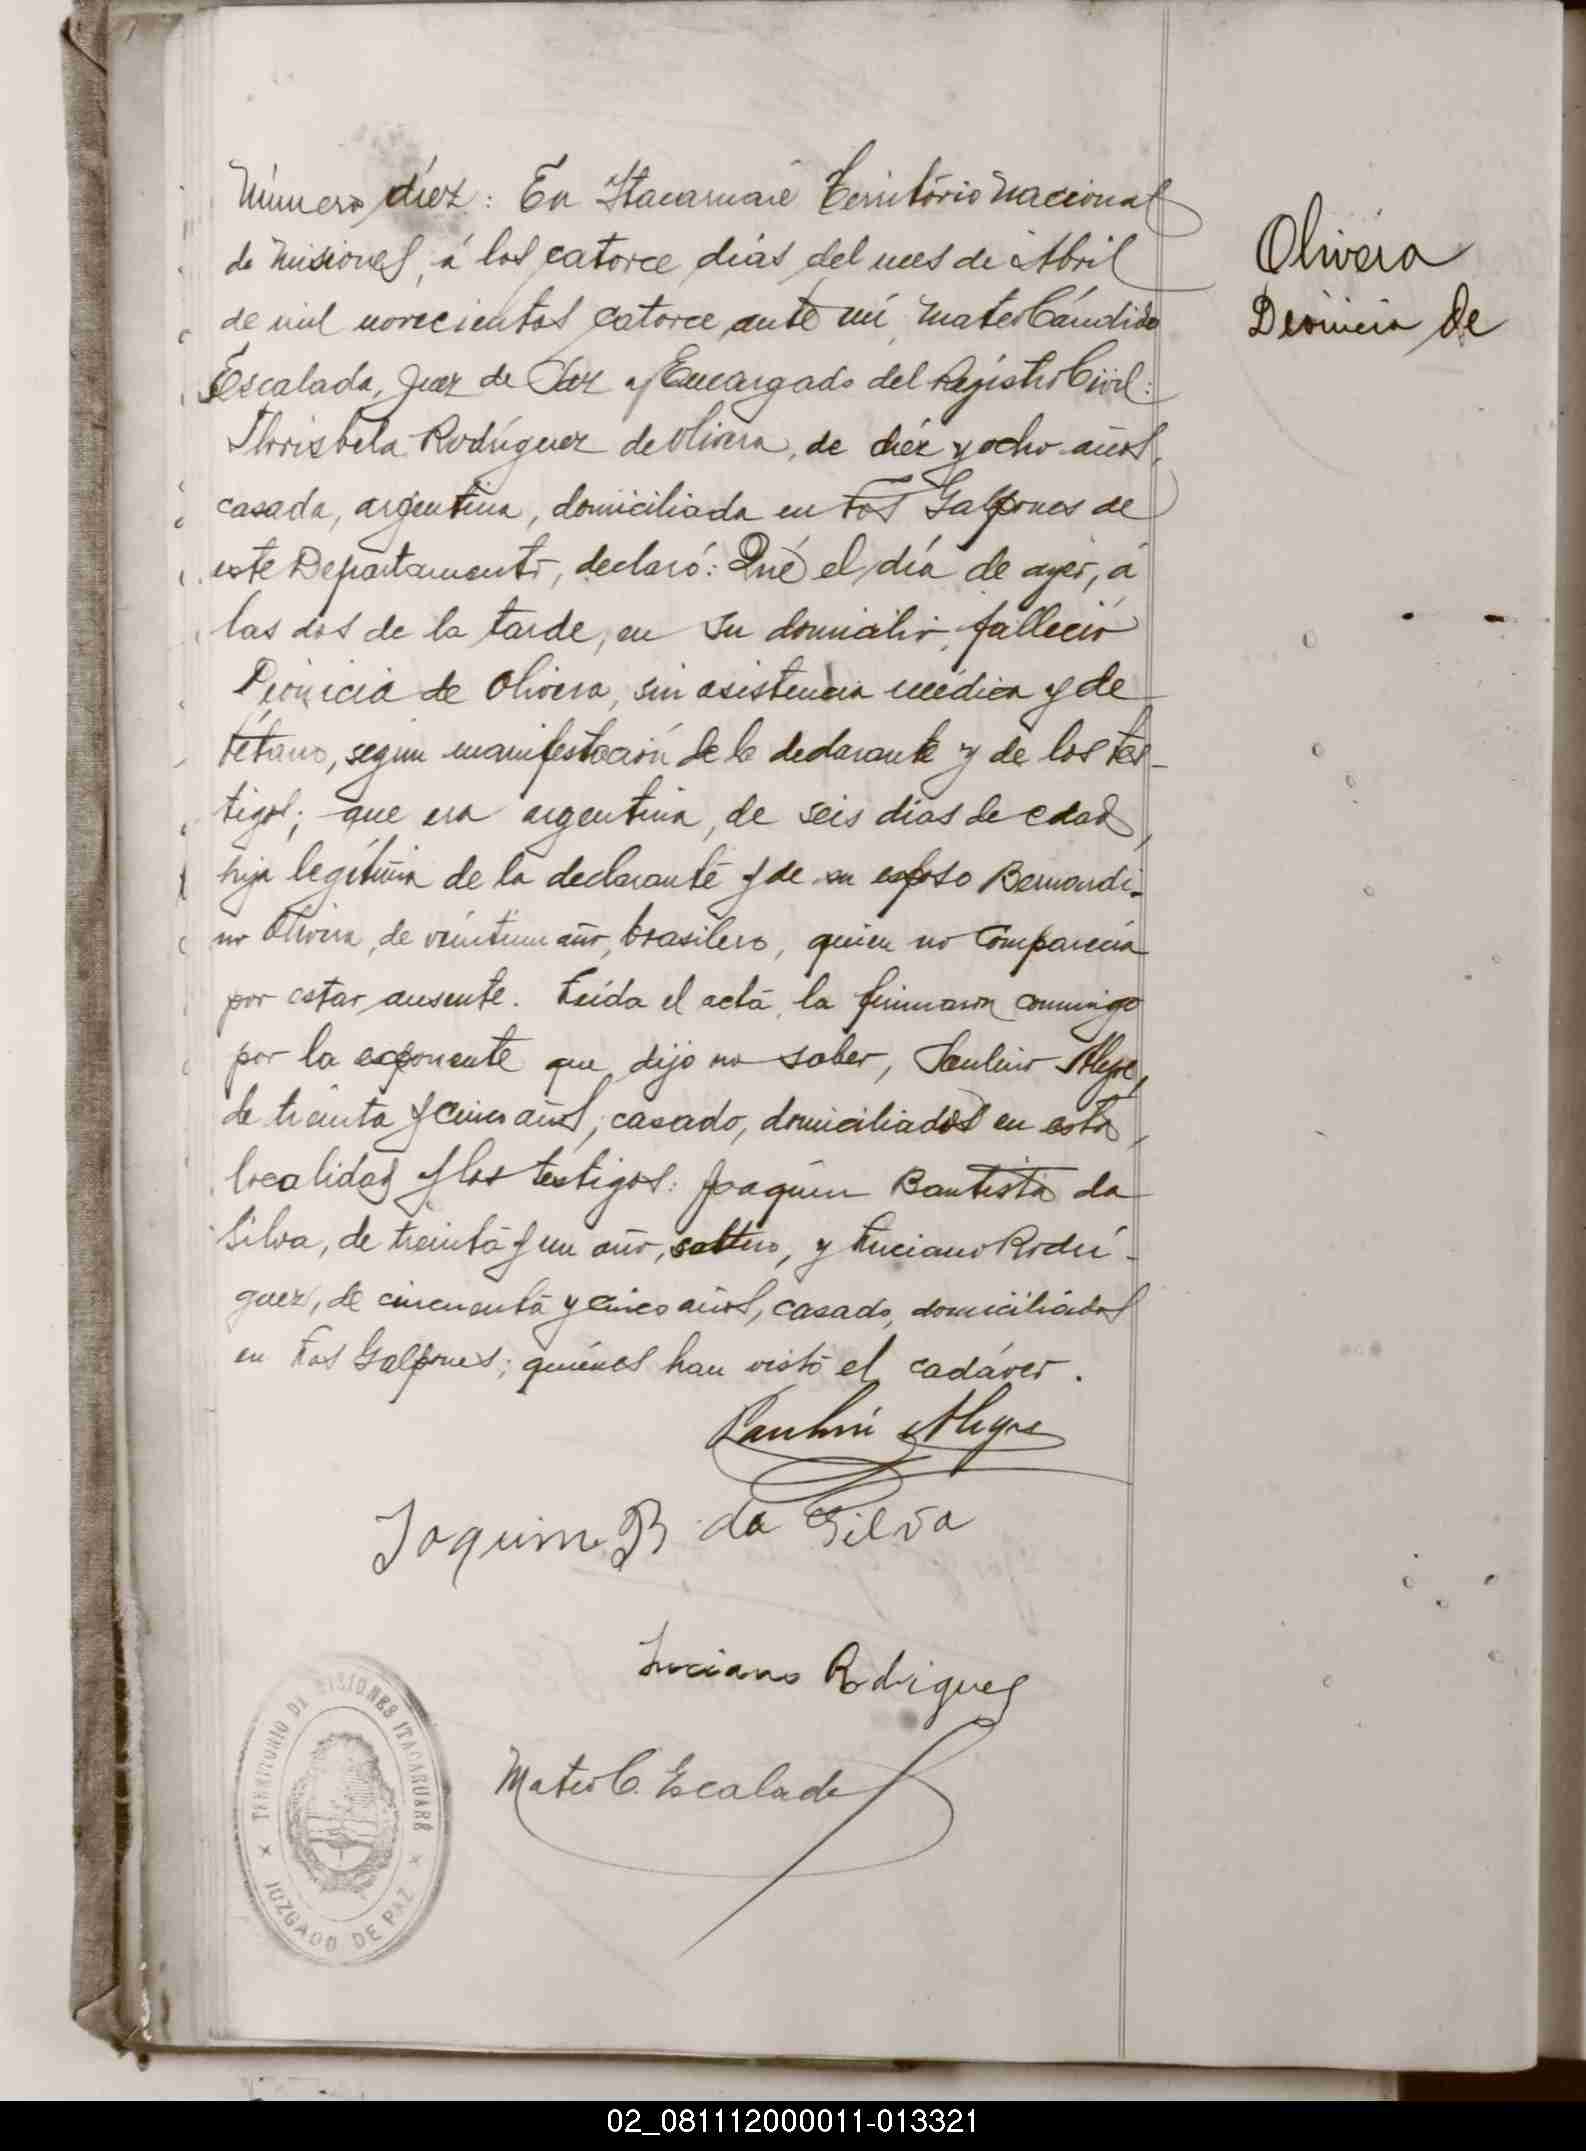 Número diez: En Itacaruaré Território Nacional
de Misiones, á los catorce dias del mes de Abril
de mil novecientos catorce, ante mí, Mateo Cándido
Escalada, Juez de Paz y Encargado del Registro Civil:
Florisbela Rodríguez de Olivera, de diéz y ocho años,
casada, argentina, domiciliada en Los Galpones de
este Departamento, declaró: Qué el día de ayer, á
las dos de la tarde, en su domicilio, falleció
Dionicia de Olivera, sin asistencia médica y de
tétano, segun manifestación de la declarante y de los tes-
tigos; que era argentina, de seis dias de edad,
hija legítima de la declarante y de su esposo Bernardi-
no Olivera, de veintiun año, brasilero, quien no comparecia
por estar ausente. Leida el acta, la firmaron conmigo
por la exponente que dijo no saber, Paulino Alegre,
de treinta y cinco años, casado, domiciliados en esta
localidad y los testigos: Joaquin Bautista da
Silva, de treinta y un año, soltero, y Luciano Rodrí-
guez, de cincuenta y cinco años, casado, domiciliados
en Los Galpones; quiénes han visto el cadáver.
Olivera
Dionicia de
Paulino Alegre
Joquim B. da Silva
Luciano Rodrigues
Mateo C. Escalada
TERRITORIO DE MISIONES ITACARUARÉ
JUZGADO DE PAZ
02_081112000011-013321